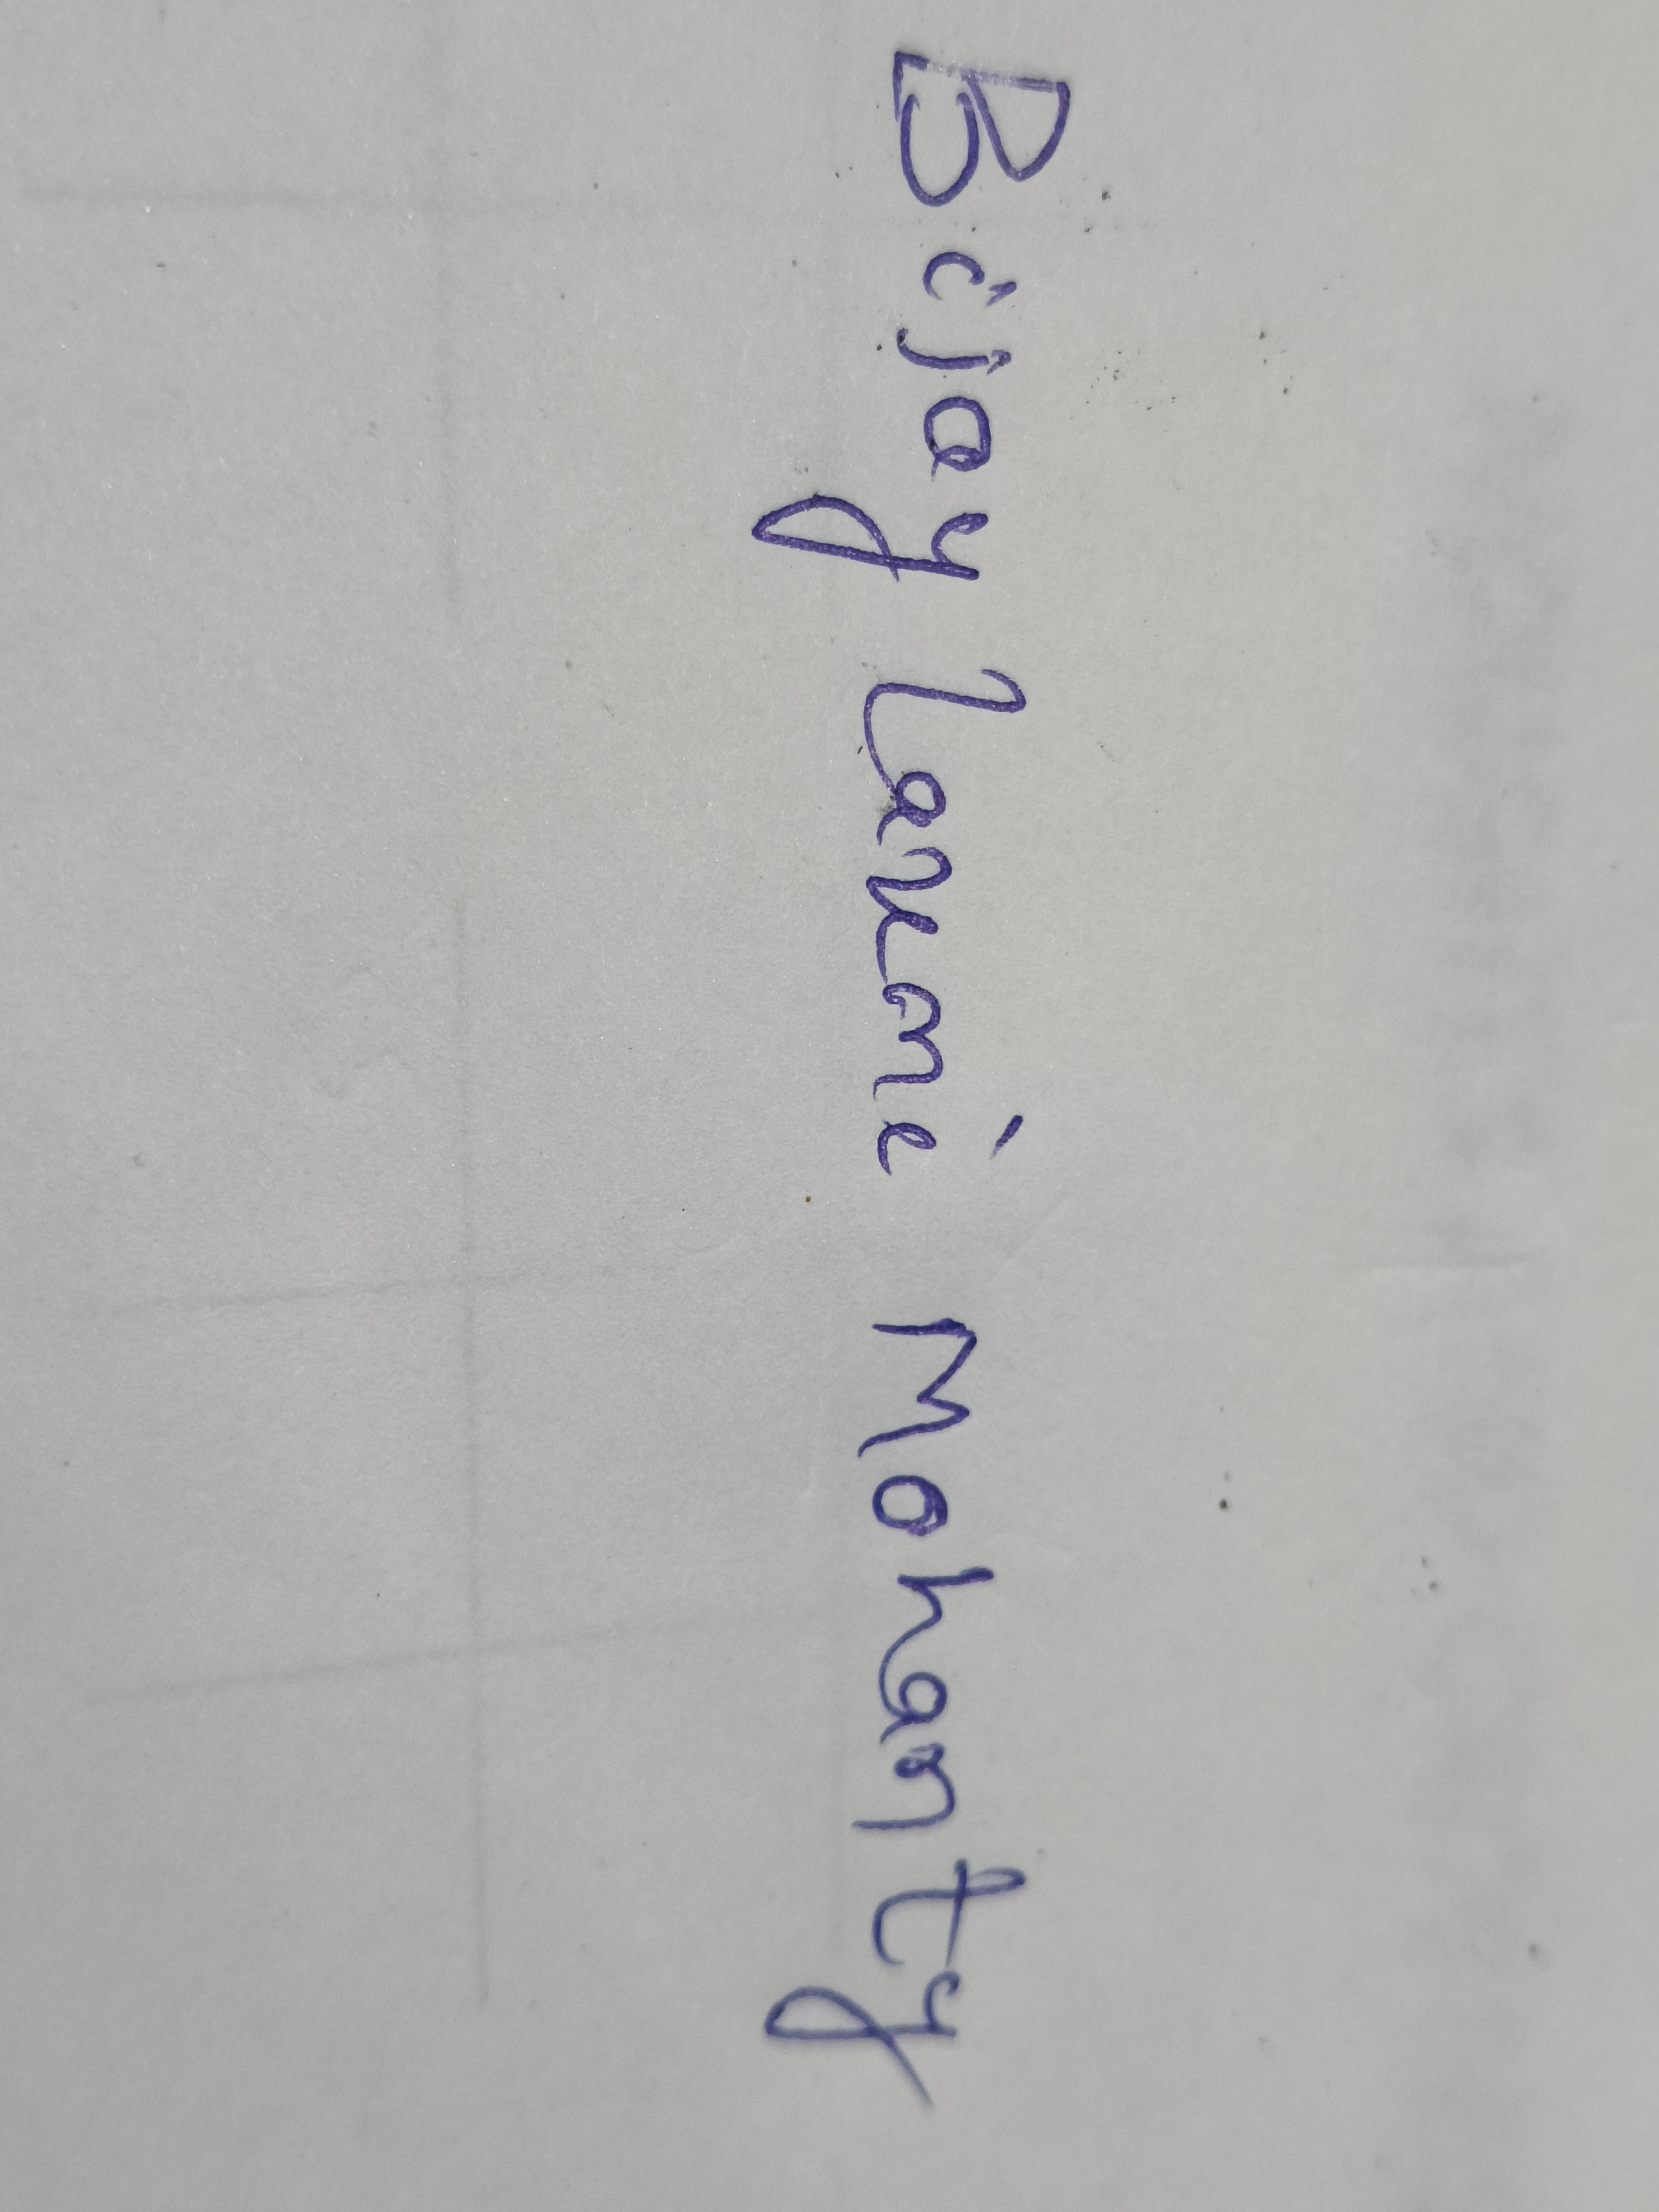 Bijay laxmi Mohanty